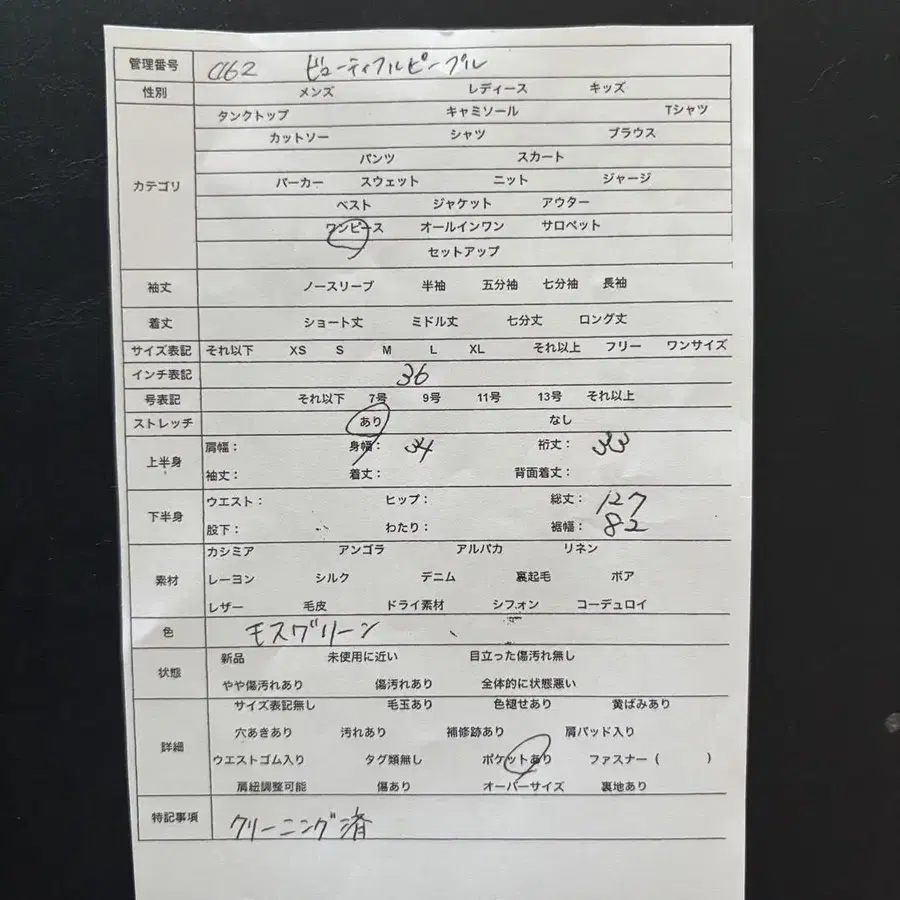 管理番号 a62 ビューティフルピープル
性別 メンズ レディース キッズ
タンクトップ キャミソール Tシャツ
カットソー シャツ ブラウス
パンツ スカート
カテゴリ パーカー スウェット ニット ジャージ
ベスト ジャケット アウター
ワンピース オールインワン サロペット
セットアップ
袖丈 ノースリーブ 半袖 五分袖 七分袖 長袖
着丈 ショート丈 ミドル丈 七分丈 ロング丈
サイズ表記 それ以下 XS S M L XL それ以上 フリー ワンサイズ
インチ表記 36
号表記 それ以下 7号 9号 11号 13号 それ以上
ストレッチ あり なし
上半身 肩幅： 身幅： 34 裄丈： 33
袖丈： 着丈： 背面着丈：
下半身 ウエスト： ヒップ： 総丈： 127
股下： わたり： 裾幅： 82
素材 カシミア アンゴラ アルパカ リネン
レーヨン シルク デニム 裏起毛 ボア
レザー 毛皮 ドライ素材 シフォン コーデュロイ
色 モスグリーン
状態 新品 未使用に近い 目立った傷汚れ無し
やや傷汚れあり 傷汚れあり 全体的に状態悪い
詳細 サイズ表記無し 毛玉あり 色褪せあり 黄ばみあり
穴あきあり 汚れあり 補修跡あり 肩パッド入り
ウエストゴム入り タグ類無し ポケットあり ファスナー（ ）
肩紐調整可能 傷あり オーバーサイズ 裏地あり
特記事項 クリーニング済